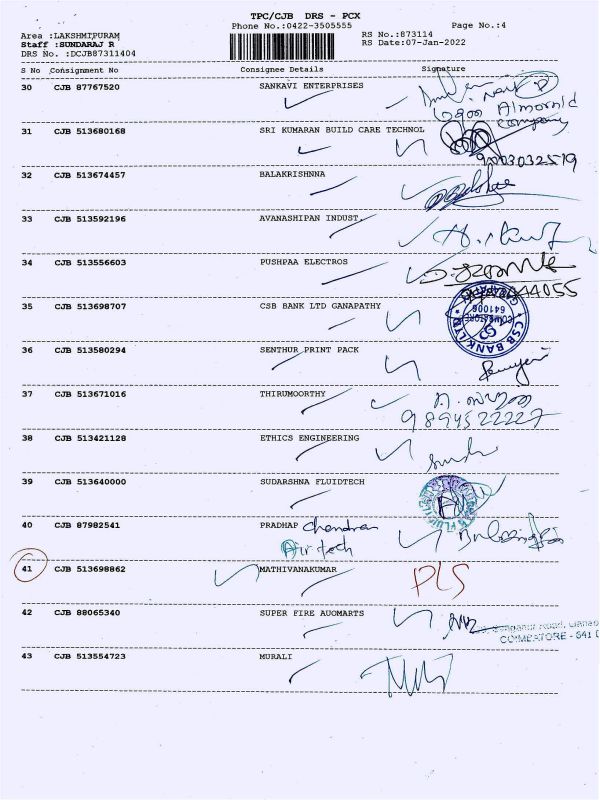 TPC/CJB DRS - PCX
Phone No.:0422-3505555 Page No.:4
Area :LAKSHMIPURAM RS No.:873114
Staff :SUNDARAJ R RS Date:07-Jan-2022
DRS No. :DCJB87311404
S No Consignment No Consignee Details Signature
30 CJB 87767520 SANKAVI ENTERPRISES
company
31 CJB 513680168 SRI KUMARAN BUILD CARE TECHNOL
9003032519
32 CJB 513674457 BALAKRISHNNA
33 CJB 513592196 AVANASHIPAN INDUST.
34 CJB 513556603 PUSHPAA ELECTROS
44055
35 CJB 513698707 CSB BANK LTD GANAPATHY
CSB BANK LTD
GANAPATHY
COIMBATORE
641006
36 CJB 513580294 SENTHUR PRINT PACK
37 CJB 513671016 THIRUMOORTHY
9894522227
38 CJB 513421128 ETHICS ENGINEERING
39 CJB 513640000 SUDARSHNA FLUIDTECH
40 CJB 87982541 PRADHAP Chandran
Air tech
41 CJB 513698862 MATHIVANAKUMAR PLS
42 CJB 88065340 SUPER FIRE AUOMARTS
Road,
COIMBATORE - 641
43 CJB 513554723 MURALI